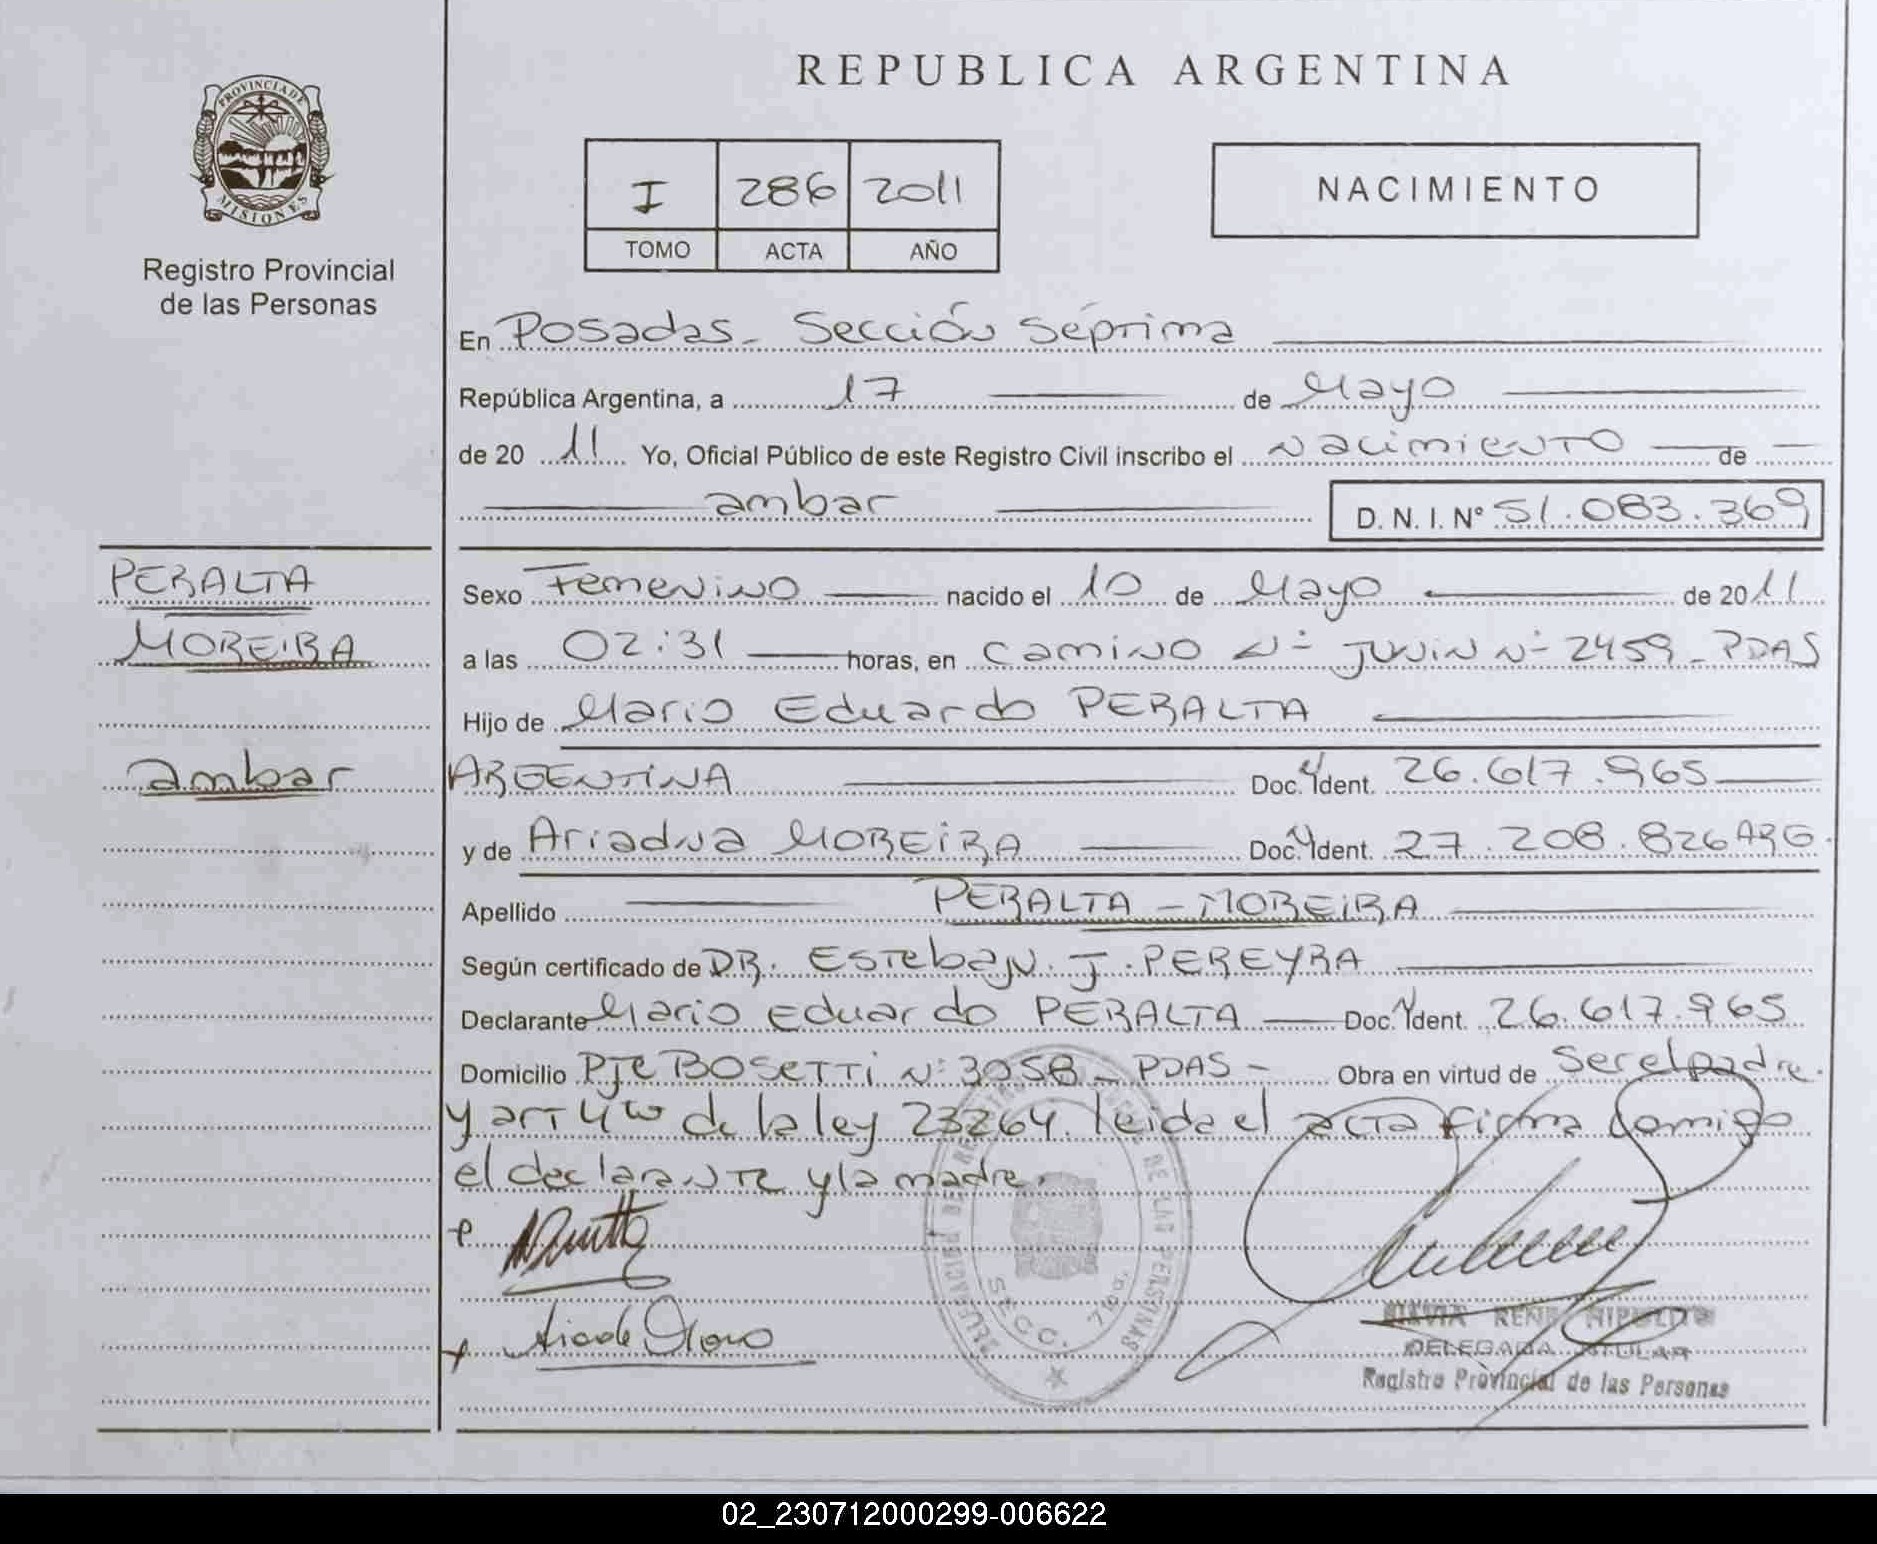 PROVINCIA DE
MISIONES
Registro Provincial
de las Personas
REPUBLICA ARGENTINA
I 286 2011
TOMO ACTA AÑO
NACIMIENTO
En Posadas - Sección Séptima
República Argentina, a 17 de Mayo
de 2011 Yo, Oficial Público de este Registro Civil inscribo el Nacimiento de
ambar D. N. I. Nº 51.083.369
PERALTA
MOREIRA
ambar
Sexo Femenino nacido el 10 de Mayo de 2011
a las 02:31 horas, en Camino Nº Junin Nº 2459 - PDAS
Hijo de Mario Eduardo PERALTA
ARGENTINA Doc. Ident. 26.617.965
y de Ariadna MOREIRA Doc. Ident. 27.208.826 ARG.
Apellido PERALTA - MOREIRA
Según certificado de DR. Esteban J. PEREYRA
Declarante Mario Eduardo PERALTA Doc. Ident. 26.617.965
Domicilio Pje Bosetti Nº 3058 - PDAS - Obra en virtud de Ser el padre
y art 4to de la ley 23264. leida el acta firma conmigo
el declarante y la madre.
DELEGACION DE REGISTRO DE LAS PERSONAS
SECC. 7ma.
RENE HIPOLITO
DELEGADA TITULAR
Registro Provincial de las Personas
02_230712000299-006622